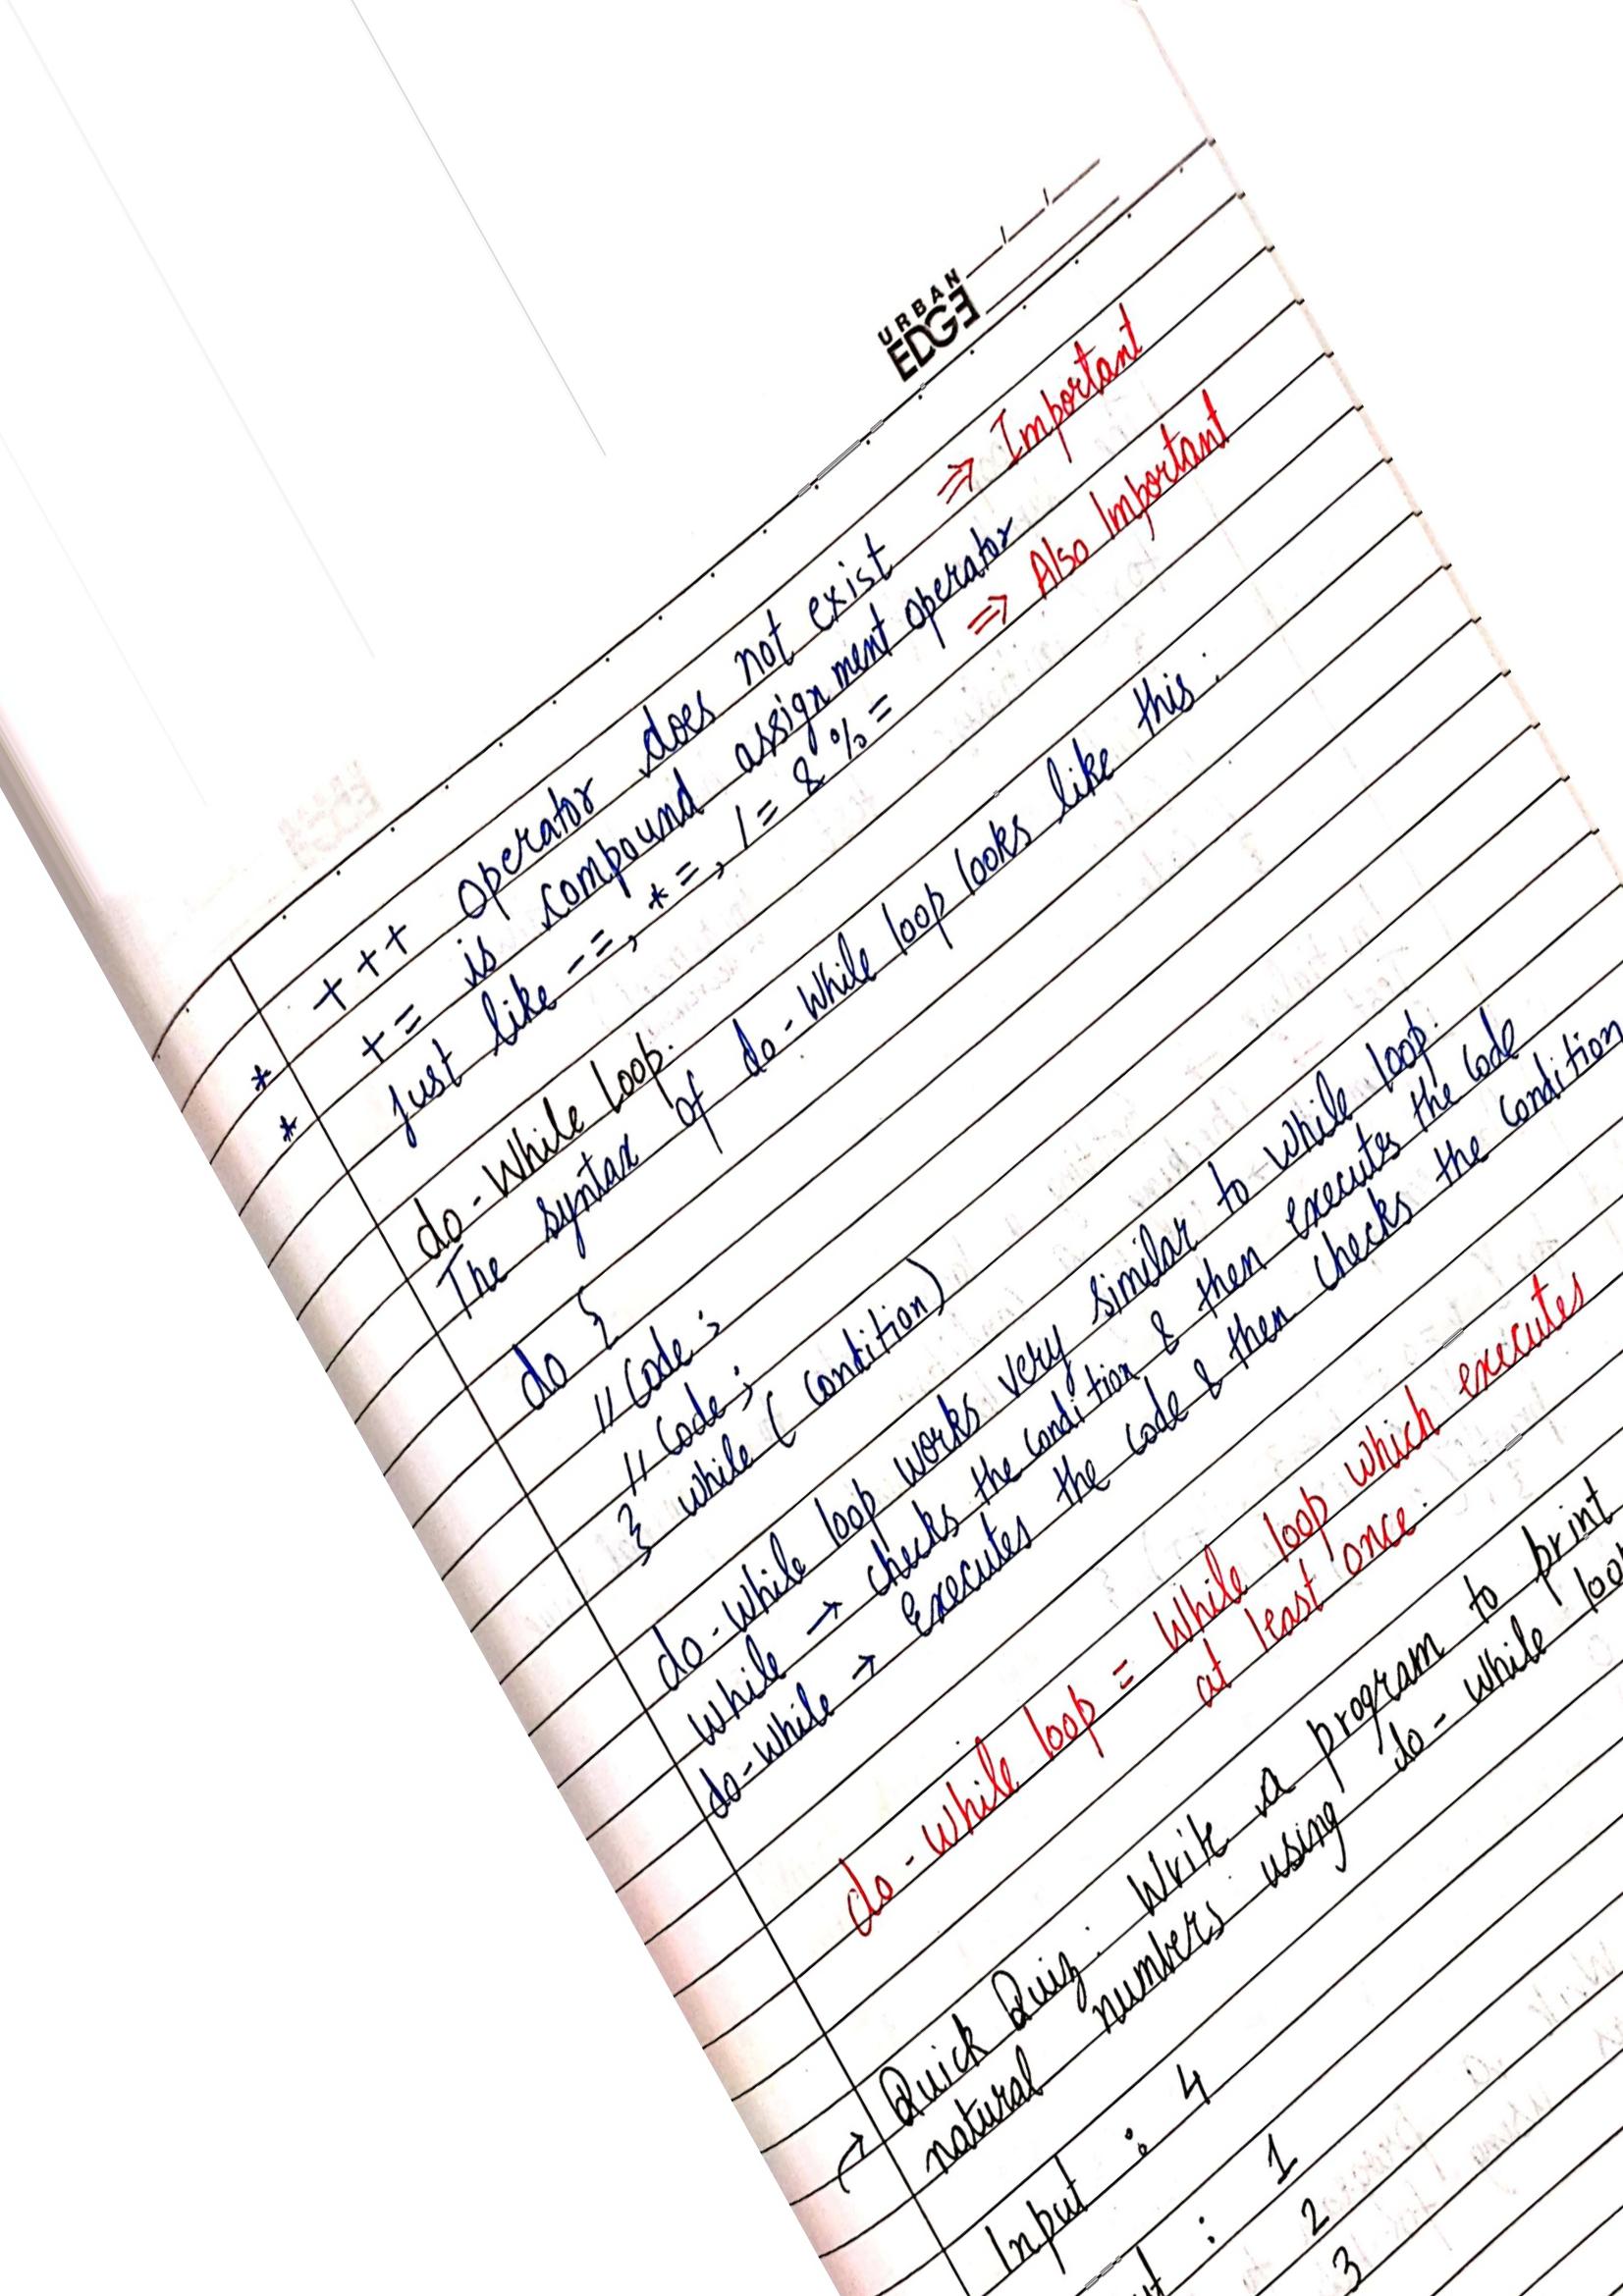 URBAN
EDGE
* +++ operator does not exist ⇒ Important
* += is compound assignment operator
just like -=, *=, /= & %= ⇒ Also Important
do-while Loop.
The syntax of do-while loop looks like this:
do {
//Code;
//Code;
} while (condition)
do-while loop works very similar to while loop.
while → checks the condition & then executes the code
do-while → Executes the code & then checks the condition
do-while loop = while loop which executes
at least once.
→ Quick Quiz: Write a program to print
natural numbers using do-while
Input : 4
: 1
2
3